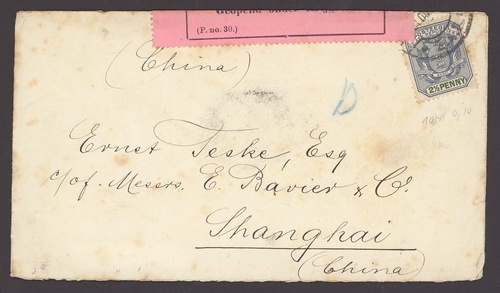 Geopend onder
(P. no. 30.)
2½ PENNY
(China)
D
Ernst Teske, Esq
c/of. Messrs. E. Bavier & Co.
Shanghai
(China)